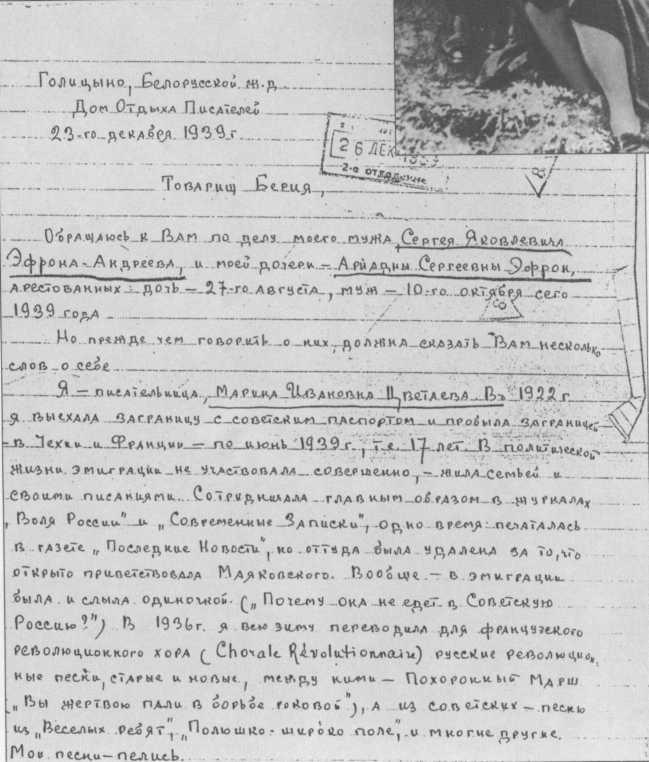 Голицыно, Белорусской ж.д.
Дом Отдыха Писателей
23-го декабря 1939 г.
26 ДЕК 1939
2-е отделение
Товарищ Берия,
Обращаюсь к Вам по делу моего мужа, Сергея Яковлевича
Эфрона-Андреева, и моей дочери – Ариадны Сергеевны Эфрон,
арестованных: дочь – 27-го августа, муж – 10-го октября сего
1939 года.
Но прежде чем говорить о них, должна сказать Вам несколько
слов о себе.
Я – писательница, Марина Ивановна Цветаева. Въ 1922 г.
я выехала заграницу с советским паспортом и пробыла заграницей
– в Чехии и Франции – по июнь 1939 г., т.е. 17 лет. В политической
жизни эмиграции не участвовала совершенно, – жила семьей и
своими писаниями. Сотрудничала главным образом в журналах
„Воля России" и „Современные Записки", одно время печаталась
в газете „Последние Новости", но оттуда была удалена за то, что
открыто приветствовала Маяковского. Вообще – в эмиграции
была и слыла одиночкой. („Почему она не едет в Советскую
Россию?") В 1936 г. я всю зиму переводила для французского
революционного хора (Chorale Révolutionnaire) русские революцион-
ные песни, старые и новые, между ними – Похоронный Марш
(„Вы жертвою пали в борьбе роковой"), а из советских – песню
из „Веселых ребят", „Полюшко – широко поле", и многие другие.
Мои песни – пелись.